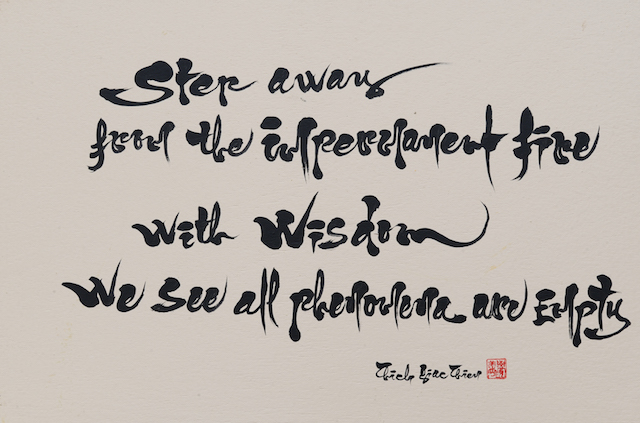 Step away
from the impermanent fire
with Wisdom
We see all phenomena are empty
Thich Giac Thien